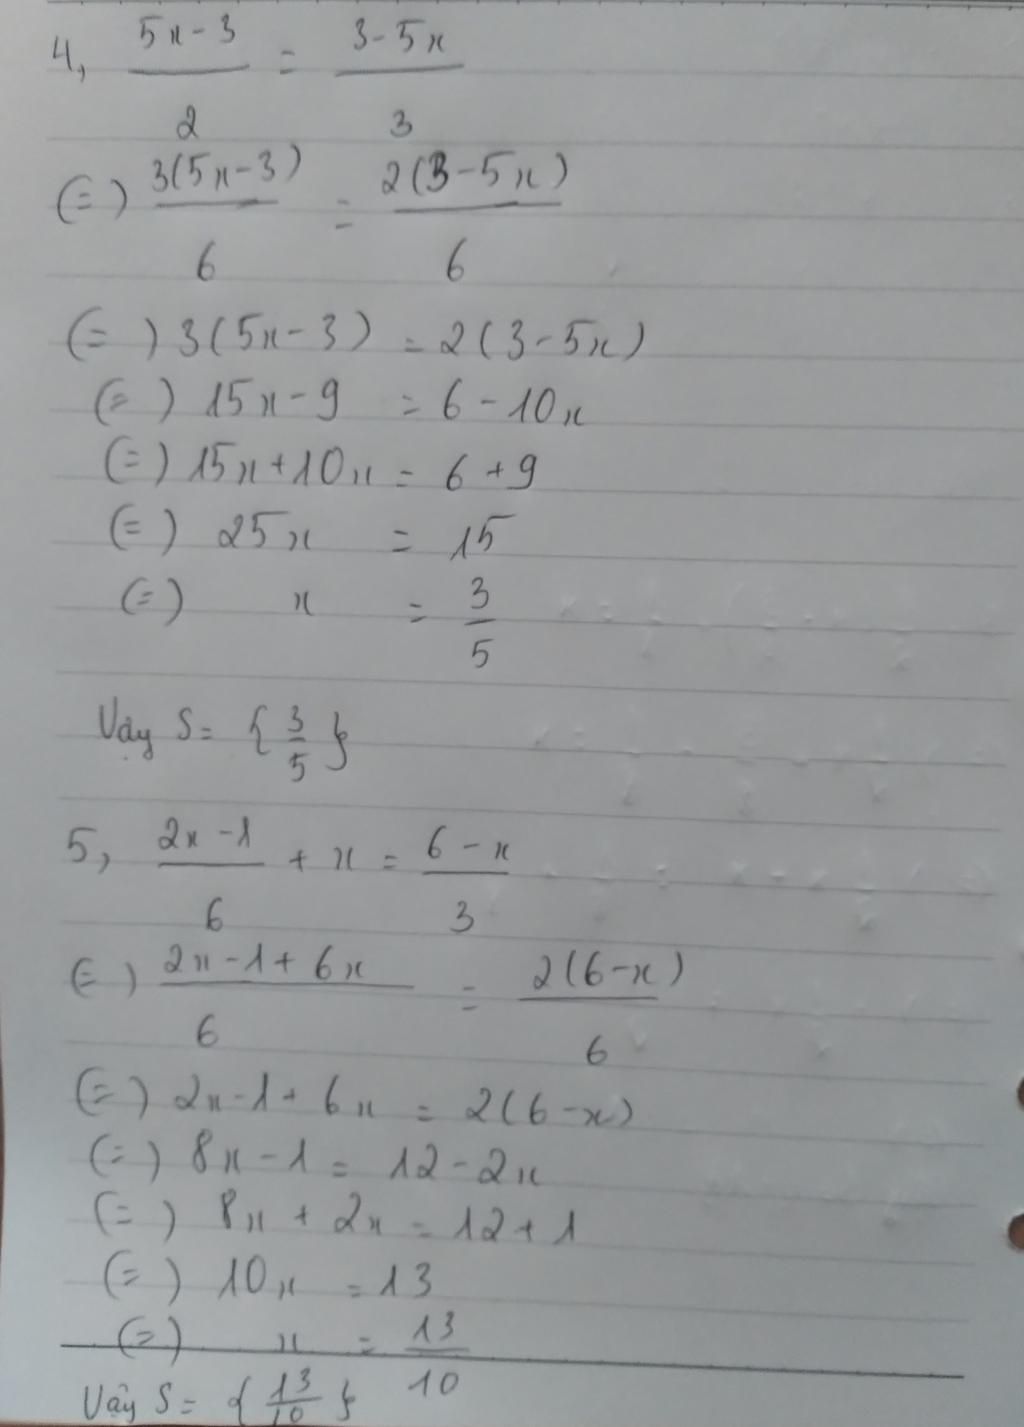 4, (5x-3)/2 = (3-5x)/3
(=) 3(5x-3)/6 = 2(3-5x)/6
(=) 3(5x-3) = 2(3-5x)
(=) 15x-9 = 6-10x
(=) 15x+10x = 6+9
(=) 25x = 15
(=) x = 3/5
Vậy S= {3/5}
5, (2x-1)/6 + x = (6-x)/3
(=) (2x-1+6x)/6 = 2(6-x)/6
(=) 2x-1+6x = 2(6-x)
(=) 8x-1 = 12-2x
(=) 8x+2x = 12+1
(=) 10x = 13
(=) x = 13/10
Vậy S= {13/10}